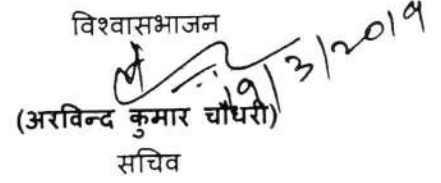 विश्वासभाजन
19/3/2019
(अरविन्द कुमार चौधरी)
सचिव